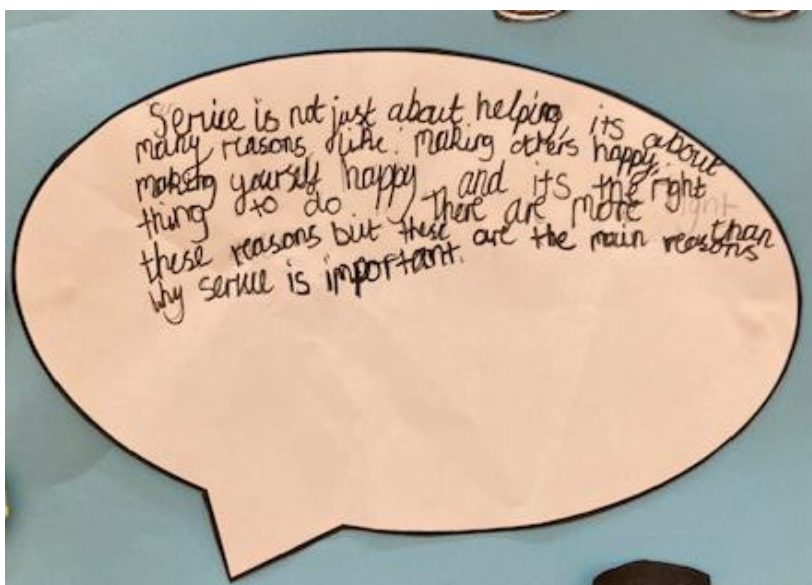 Service is not just about helping, its about
many reasons like: making others happy,
making yourself happy and its the right
thing to do There are more than
these reasons but these are the main reasons
why service is important.